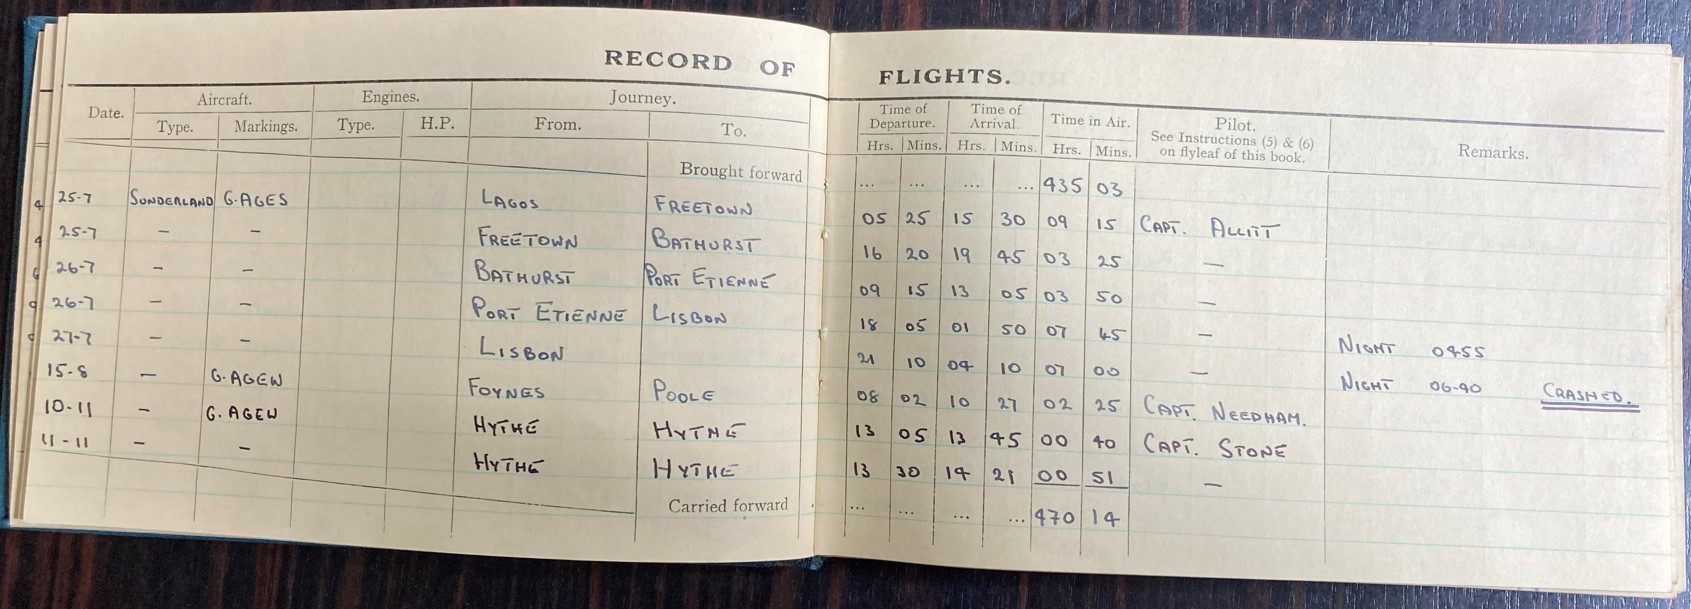 RECORD OF FLIGHTS.
Date. Aircraft. Engines. Journey. Time of Departure. Time of Arrival. Time in Air. Pilot. See Instructions (5) & (6) on flyleaf of this book. Remarks.
Type. Markings. Type. H.P. From. To. Hrs. Mins. Hrs. Mins. Hrs. Mins.
Brought forward ... ... ... ... 435 03
25-7 SUNDERLAND G.AGES LAGOS FREETOWN 05 25 15 30 09 15 CAPT. ALLITT
25-7 — — FREETOWN BATHURST 16 20 19 45 03 25 —
26-7 — — BATHURST PORT ETIENNE 09 15 13 05 03 50 —
26-7 — — PORT ETIENNE LISBON 18 05 01 50 07 45 — NIGHT 0455
27-7 — — LISBON 21 10 04 10 07 00 — NIGHT 06-40 CRASHED.
15-8 — G.AGEW FOYNES POOLE 08 02 10 27 02 25 CAPT. NEEDHAM.
10-11 — G.AGEW HYTHE HYTHE 13 05 13 45 00 40 CAPT. STONE
11-11 — — HYTHE HYTHE 13 30 14 21 00 51 —
Carried forward ... ... ... ... 470 14